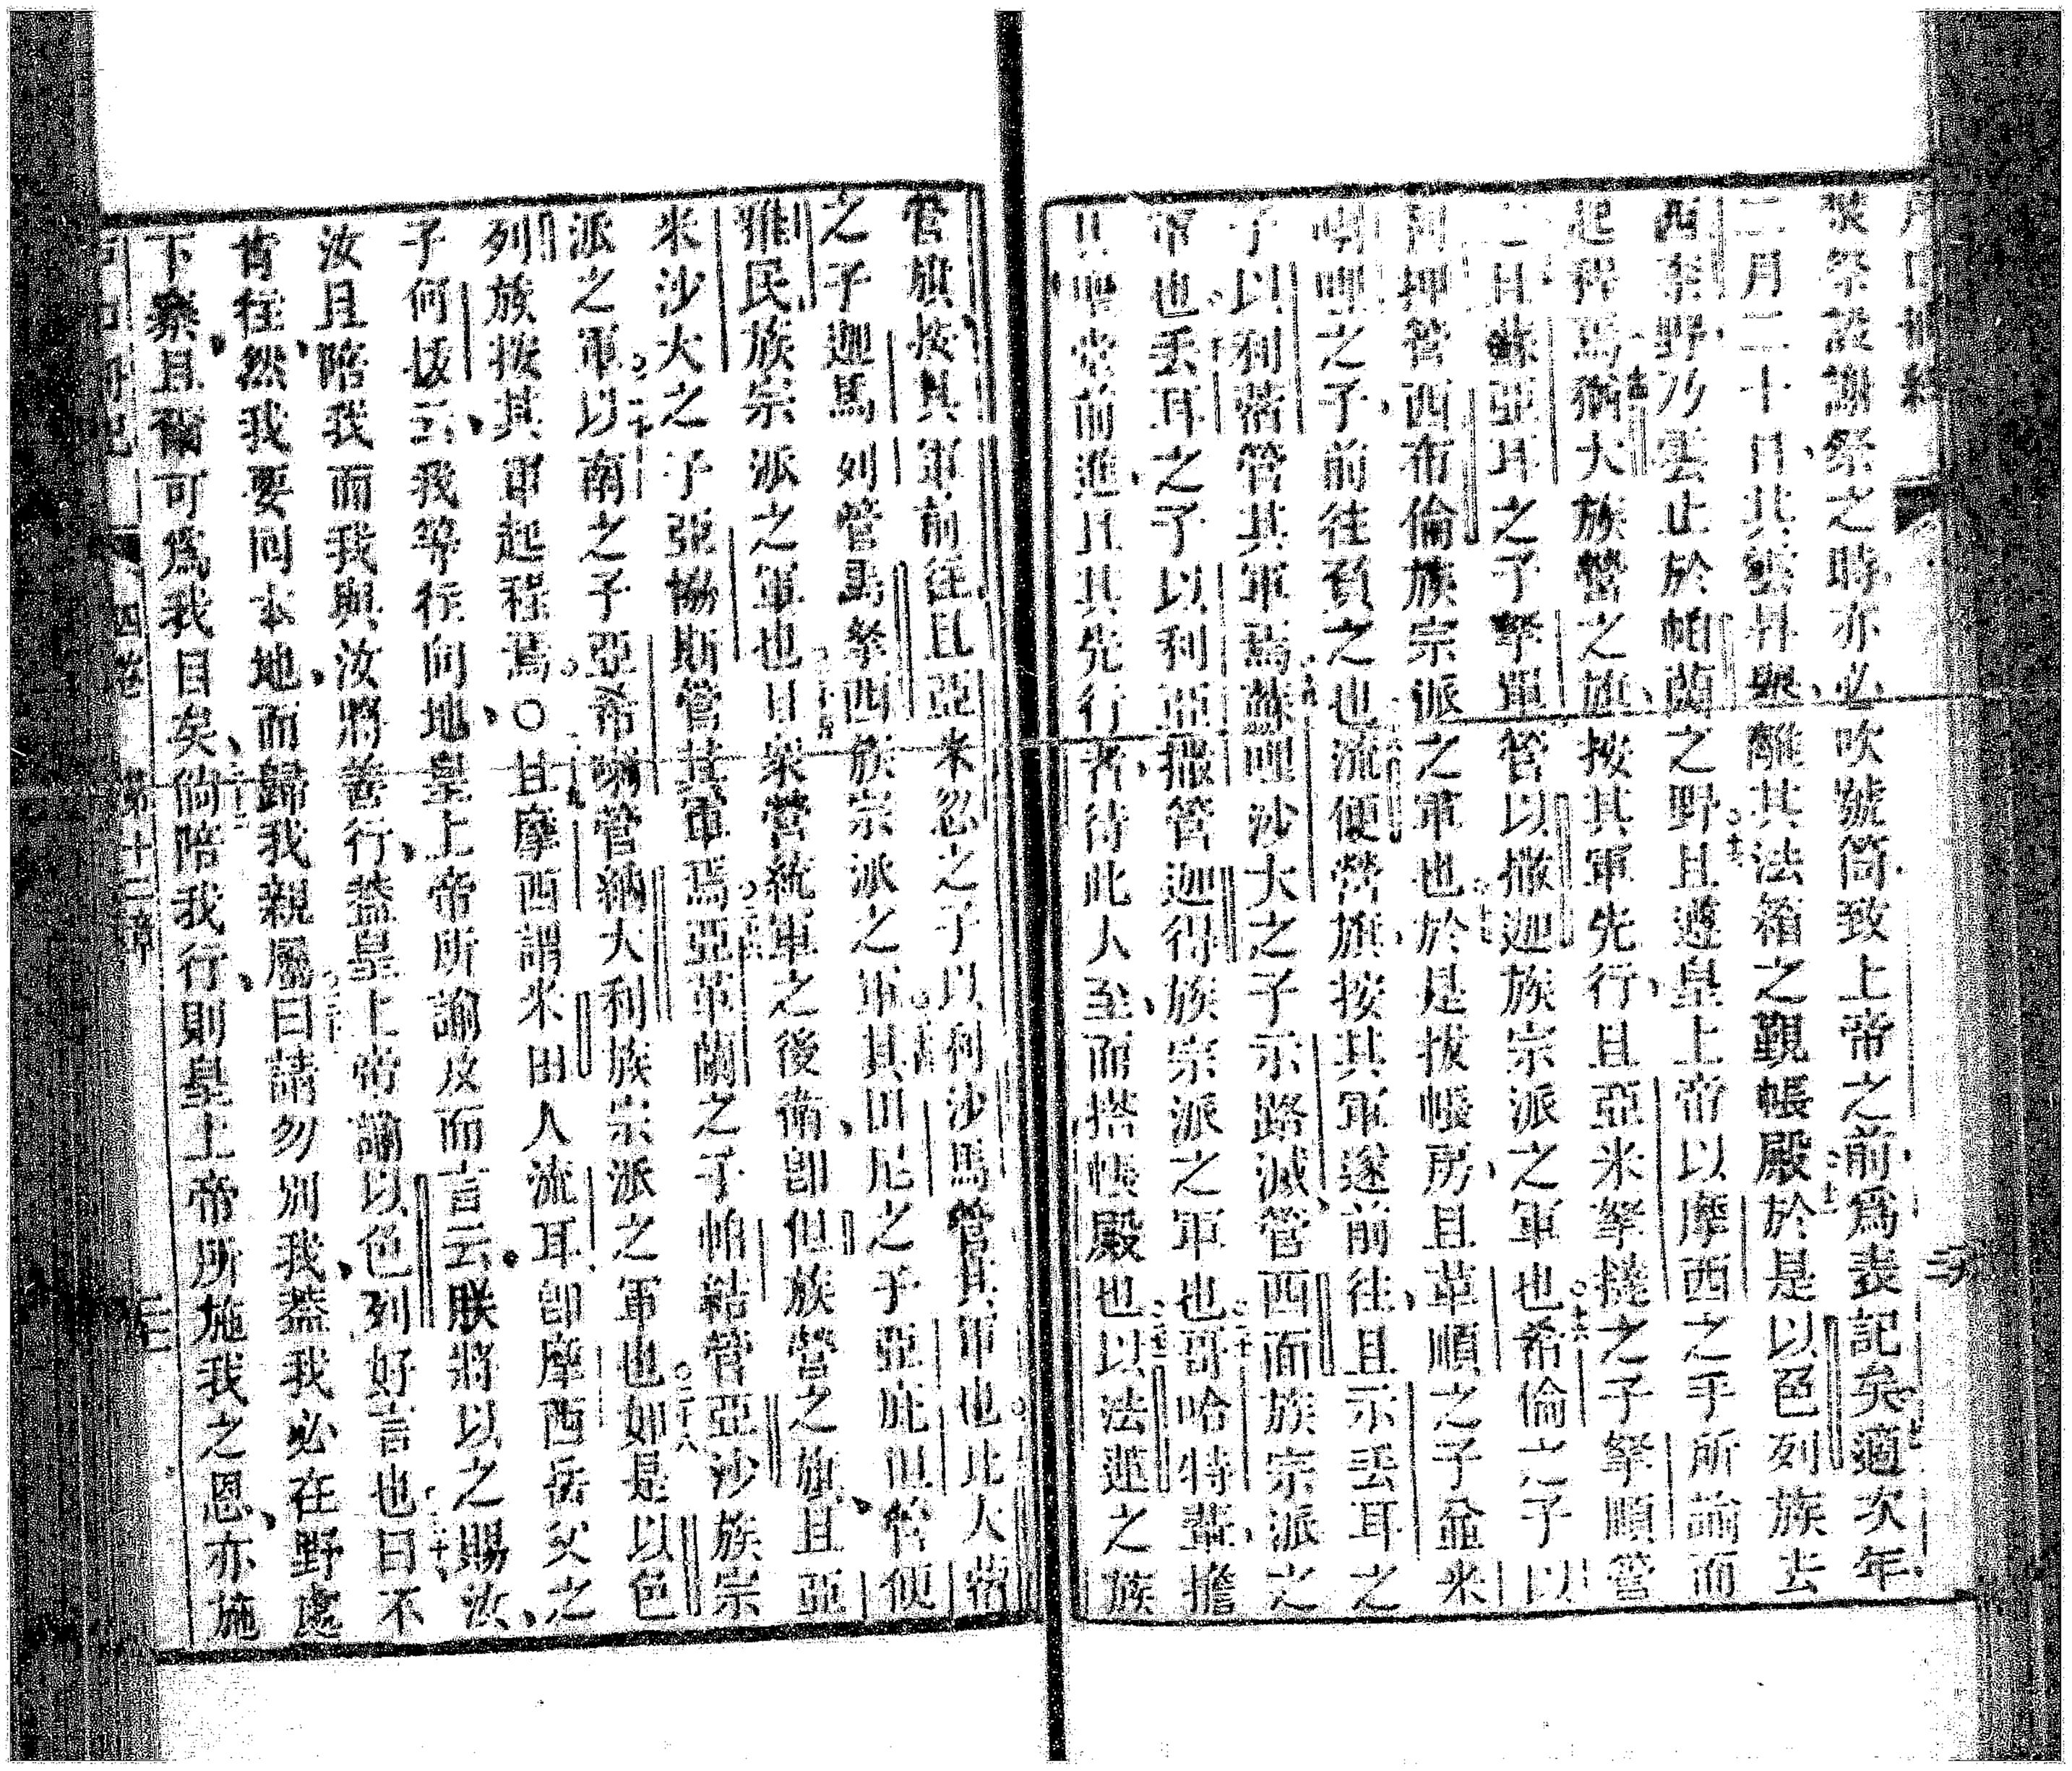 裝祭設謝祭之時亦必吹號筒致上帝之前爲表記矣適次年
二月二十日其雲昇與離其法箱之觀帳殿於是以色列族去
西奈野乃雲止於帕蘭之野且遵皇上帝以摩西之手所諭而
起程焉猶大族營之旗按其軍先行且亞米拏撻之子拏順管
之且蘇亞耳之子拏單管以撒迦族宗派之軍也希倫之子以
利押管西布倫族宗派之軍也於是拔帳房且革順之子並米
喇哩之子前往負之也流便營旗按其軍遂前往且示丢耳之
子以利蓿管其軍焉蘇哩沙大之子示路滅管西面族宗派之
軍也丢耳之子以利亞撒管迦得族宗派之軍也哥哈特輩擔
其聖堂前進且其先行者待此人至而搭帳殿也以法蓮之族
營旗按其軍前往且亞米忽之子以利沙馬管其軍也比大蓿
之子迦馬列管馬拏西族宗派之軍其田尼之子亞庇但管便
雅民族宗派之軍也且衆營統軍之後衛卽但族營之旗且亞
米沙大之子亞協斯管其軍焉亞革蘭之子帕結管亞沙族宗
派之軍以南之子亞希喇管納大利族宗派之軍也如是以色
列族按其軍起程焉○且摩西謂米田人流耳卽摩西岳父之
子何抜云我等行向地皇上帝所諭及而言云朕將以之賜汝
汝且陪我而我與汝將善行蓋皇上帝諭以色列好言也曰不
肯往然我要囘本地而歸我親屬曰請勿別我蓋我必在野處
下寨且爾可爲我目矣倘陪我行則皇上帝所施我之恩亦施
四卷 第十二章 三